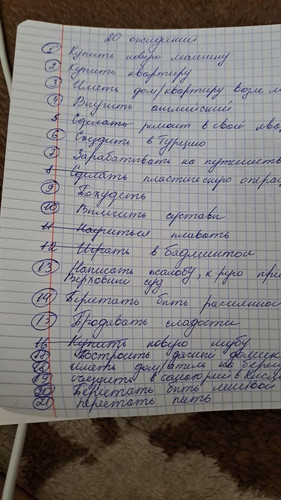 20 ожиданий
1 Купить новую машину
2 Купить квартиру
3 Иметь дом/квартиру возле м
4 Выучить английский
5 Сделать ремонт в своей ква
6 Съездить в Турцию
7 Зарабатывать на путешеств
8 Сделать пластическую опера
9 Похудеть
10 Вылечить суставы
11 Научиться плавать
12 Играть в бадминтон
13 Написать жалобу, к
Верховный суд
14 Перестать быть рассеянной
15 Продавать сладости
16 Купить новую шубу
17 Построить дачный домик
18 Иметь дом/ на бере
19 Съездить в санаторий в Кисл
20 Перестать быть ленивой
21 Перестать пить